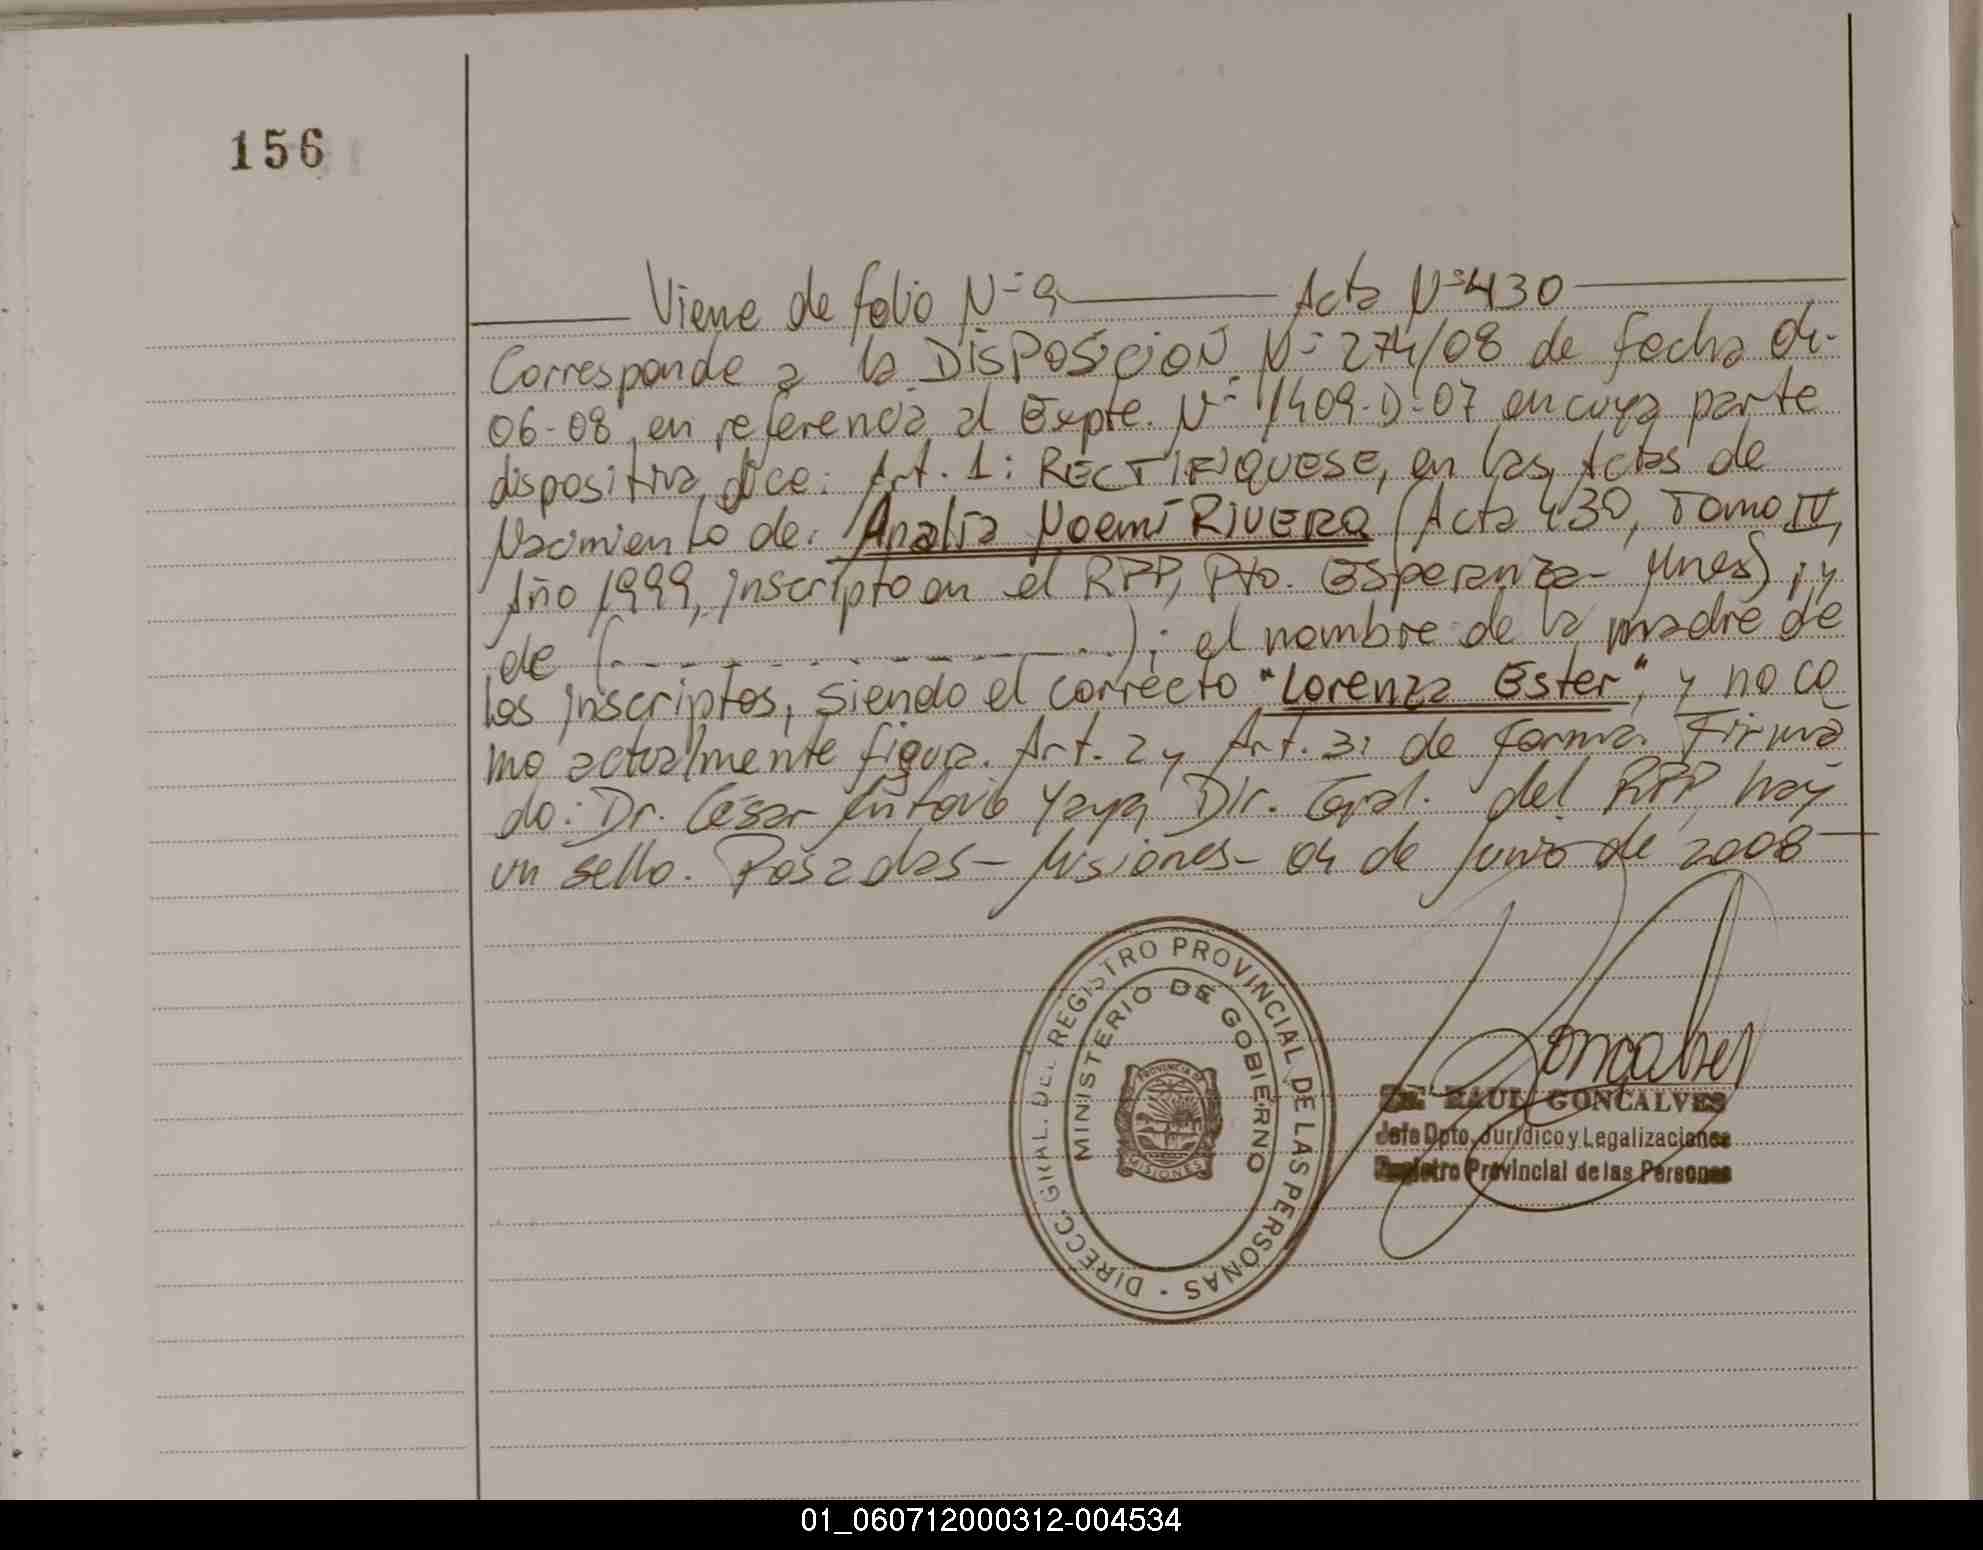 156
Viene de folio Nº 9 Acta Nº 430
Corresponde a la DISPOSICION Nº 274/08 de fecha 04-
06-08, en referencia al Expte. Nº 1409-D-07 en cuya parte
dispositiva dice: Art. 1: RECTIFIQUESE, en las Actas de
Nacimiento de: Analía Noemí RIVERO (Acta 430, Tomo IV,
Año 1999, inscripto en el RPP, Pto. Esperanza- Mnes) ; y
de (- - - - - - - - - - - -); el nombre de la madre de
los inscriptos, siendo el correcto "Lorenza Ester", y no co
mo actualmente figura. Art. 2 y Art. 3: de forma. Firma
do: Dr. César Antonio Yaya, Dir. Gral. del RPP, hay
un sello. Posadas- Misiones- 04 de Junio de 2008
DIRECC. GRAL. DEL REGISTRO PROVINCIAL DE LAS PERSONAS
MINISTERIO DE GOBIERNO
PROVINCIA DE
MISIONES
Goncalves
Dr. RAUL GONCALVES
Jefe Dpto. Jurídico y Legalizaciones
Registro Provincial de las Personas
01_060712000312-004534